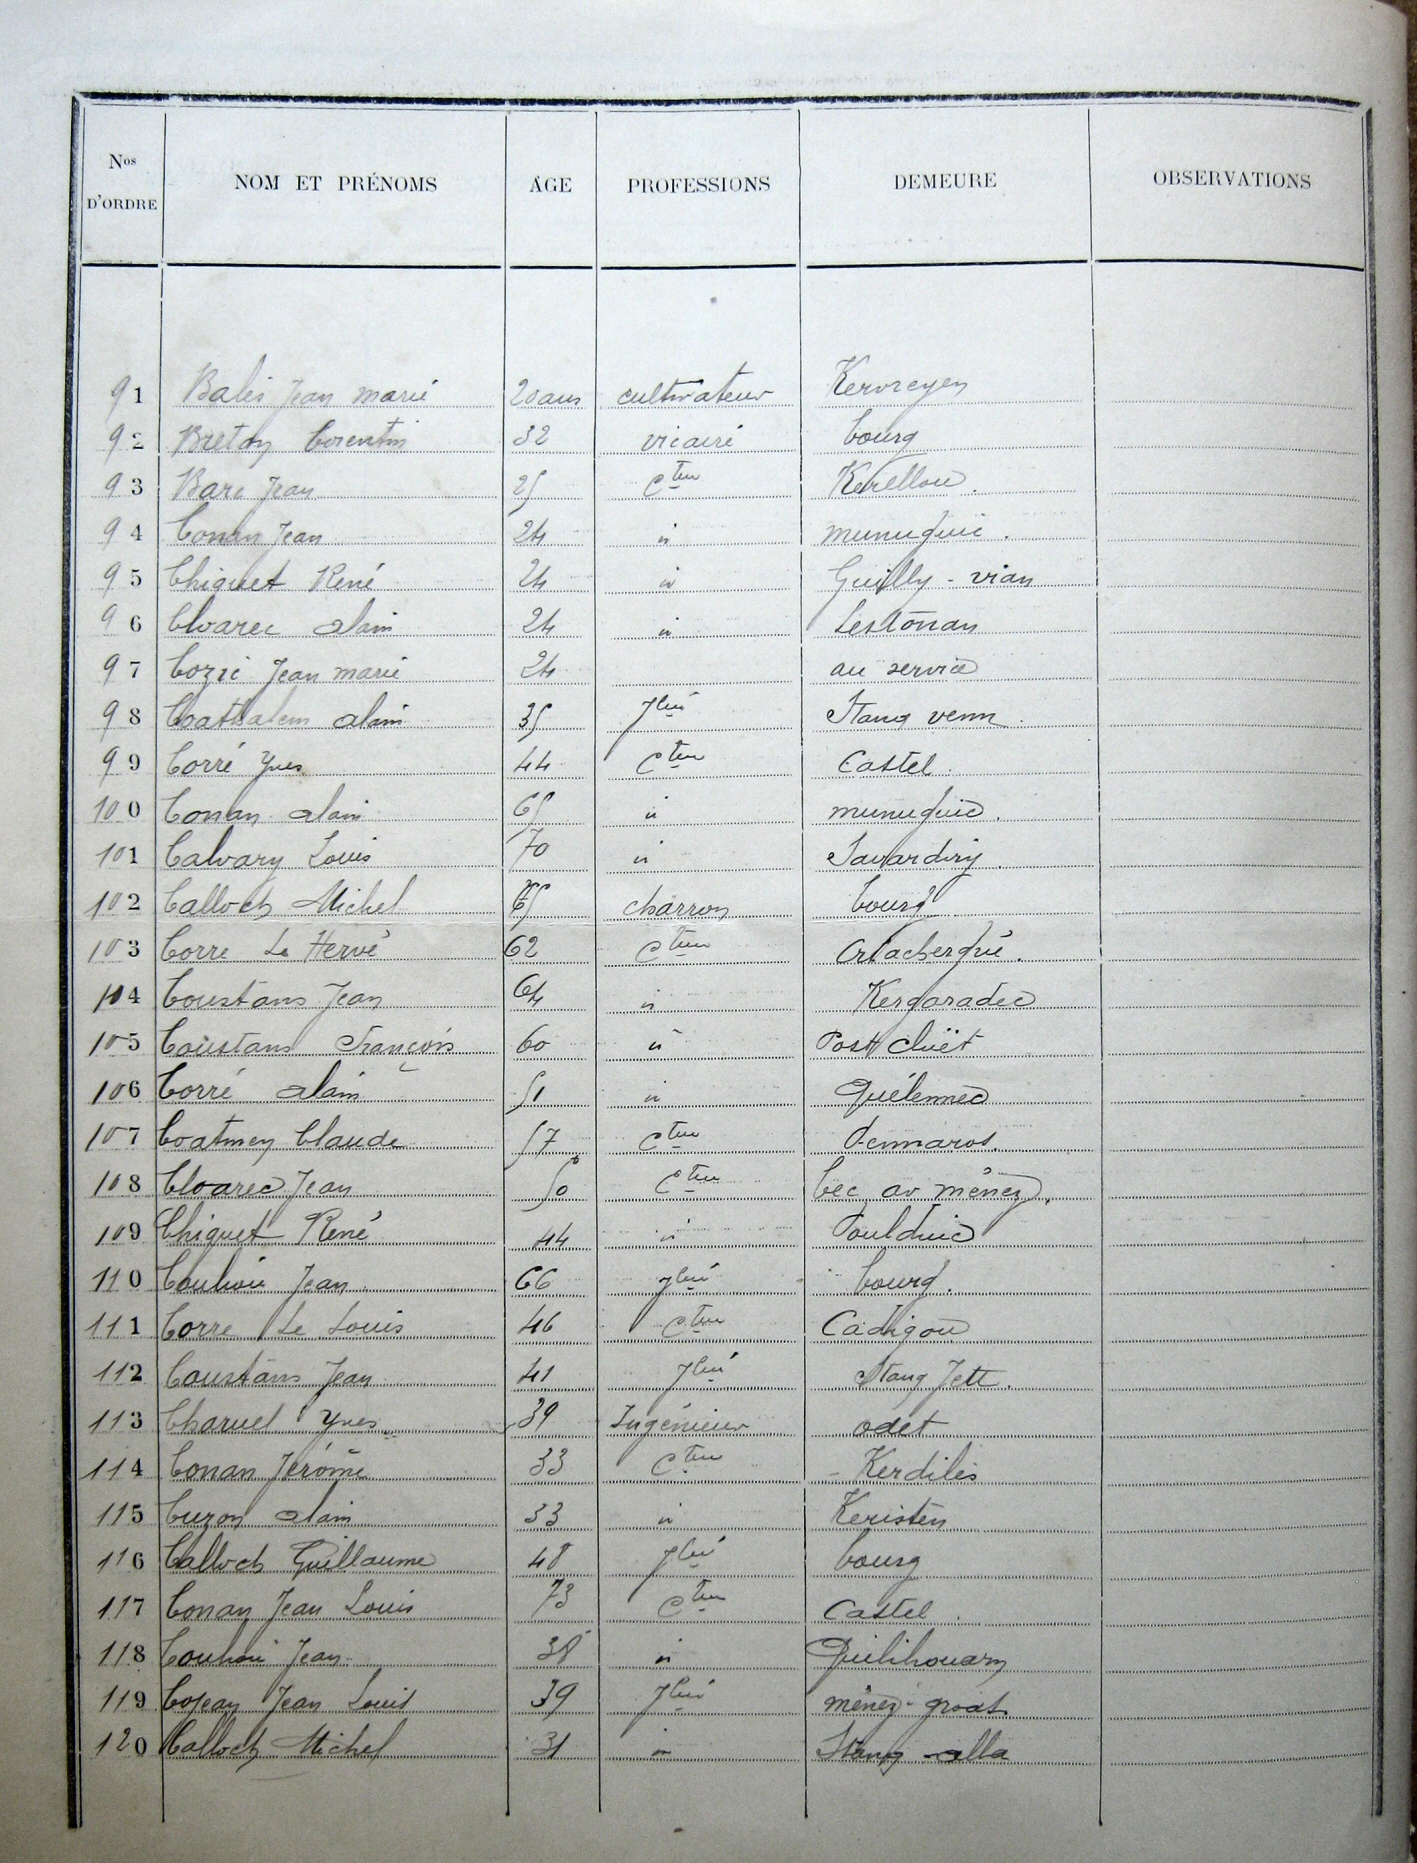 Nos D'ORDRE NOM ET PRÉNOMS AGE PROFESSIONS DEMEURE OBSERVATIONS
91 Balès Jean marié 20 ans cultivateur Kervreyen
92 Breton Corentin 32 vicairé bourg
93 Barc Jean 25 Cteur Kerellou.
94 Conan Jean 24 " munuguic.
95 Chiquet René 24 " Guilly-vian
96 Cloarec alain 24 " Lestonan
97 Cozic Jean marie 24 au service
98 Coathalem alain 35 Jlier Stang venn.
99 Corré Yves 44 Cteur Castel.
100 Conan alain 65 " munuguic.
101 Calvary Louis 70 " Savardiry.
102 Calloch Michel 65 charron bourg
103 Corre Le Hervé 62 Cteur
104 Coustans Jean 64 " Kergaradec
105 Coustans François 60 " Post Cluët
106 Corré alain 51 " Quélennec
107 Coatmen Claude 57 Cteur Pennaros.
108 Cloarec Jean 50 Cteur bec ar ménez.
109 Chiquet René 44 " Poulduic
110 Jean 66 Jlier bourg.
111 Corre Le Louis 46 Cteur Cadigou
112 Coustans Jean 41 Jlier Stang Jett.
113 Charuel Yves 39 Ingénieur odet
114 Conan Jérôme 33 Cteur Kerdilès
115 Cuzon alain 33 " Keristen
116 Calloch Guillaume 48 Jlier bourg
117 Conan Jean Louis 73 Cteur Castel.
118 Jean 38 " Quilihouarn
119 Cojean Jean Louis 39 Jlier ménez-groas.
120 Calloch Michel 31 " Stang-alla